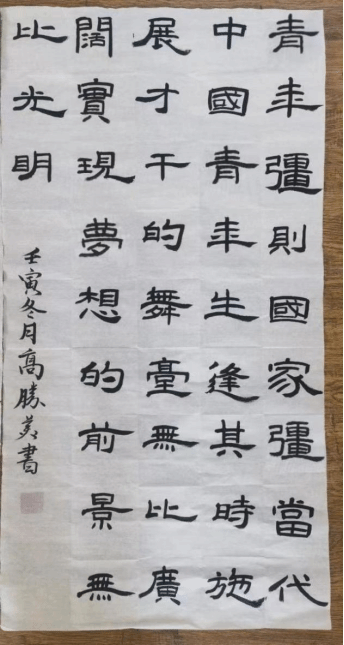 青年彊則國家彊當代
中國青年生逢其時施
展才干的舞臺無比廣
闊實現夢想的前景無
比光明
壬寅冬月高勝書